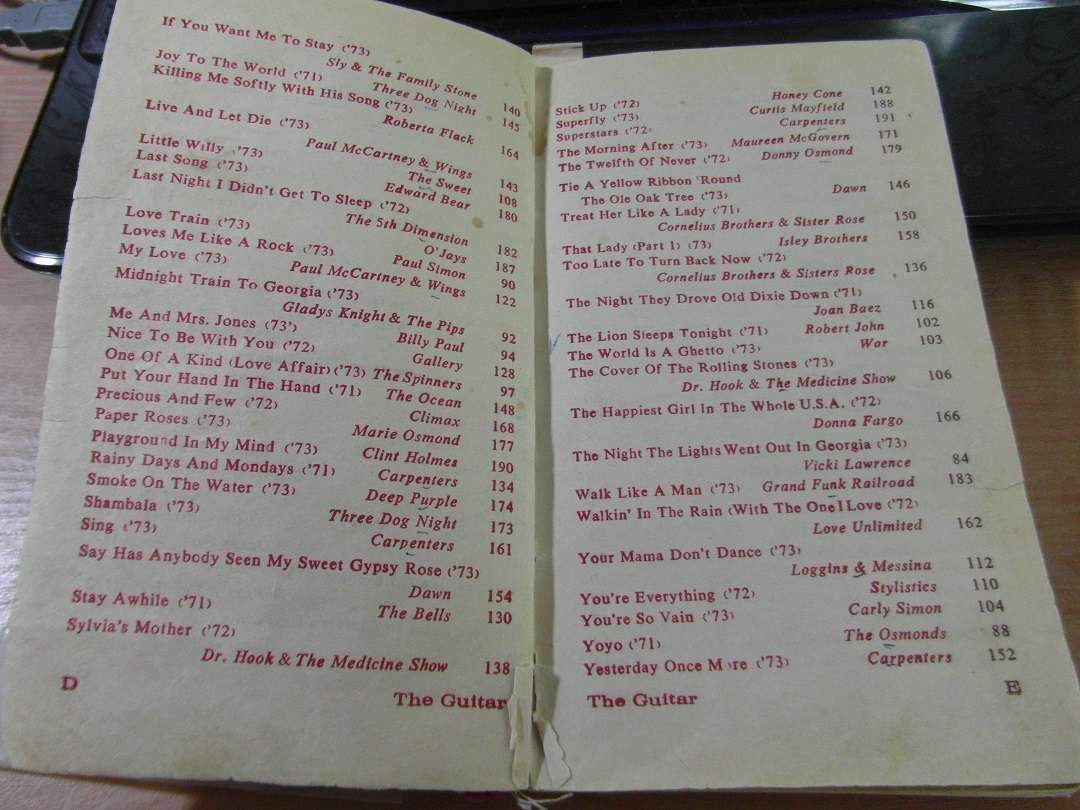 If You Want Me To Stay ('73)
Sly & The Family Stone 140
Joy To The World ('71) Three Dog Night 145
Killing Me Softly With His Song ('73)
Roberta Flack 164
Live And Let Die ('73)
Paul McCartney & Wings 143
Little Willy ('73) The Sweet 108
Last Song ('73) Edward Bear 180
Last Night I Didn't Get To Sleep ('72)
The 5th Dimension 182
Love Train ('73) O'Jays 187
Loves Me Like A Rock ('73) Paul Simon 90
My Love ('73) Paul McCartney & Wings 122
Midnight Train To Georgia ('73)
Gladys Knight & The Pips 92
Me And Mrs. Jones (73') Billy Paul 94
Nice To Be With You ('72) Gallery 128
One Of A Kind (Love Affair) ('73) The Spinners 97
Put Your Hand In The Hand ('71) The Ocean 148
Precious And Few ('72) Climax 168
Paper Roses ('73) Marie Osmond 177
Playground In My Mind ('73) Clint Holmes 190
Rainy Days And Mondays ('71) Carpenters 134
Smoke On The Water ('73) Deep Purple 174
Shambala ('73) Three Dog Night 173
Sing ('73) Carpenters 161
Say Has Anybody Seen My Sweet Gypsy Rose ('73)
Dawn 154
Stay Awhile ('71) The Bells 130
Sylvia's Mother ('72)
Dr. Hook & The Medicine Show 138
D The Guitar
Stick Up ('72) Honey Cone 142
Superfly ('73) Curtis Mayfield 188
Superstars ('72) Carpenters 191
The Morning After ('73) Maureen McGovern 171
The Twelfth Of Never ('72) Donny Osmond 179
Tie A Yellow Ribbon 'Round
The Ole Oak Tree ('73) Dawn 146
Treat Her Like A Lady ('71)
Cornelius Brothers & Sister Rose 150
That Lady (Part 1) ('73) Isley Brothers 158
Too Late To Turn Back Now ('72)
Cornelius Brothers & Sisters Rose 136
The Night They Drove Old Dixie Down ('71)
Joan Baez 116
The Lion Sleeps Tonight ('71) Robert John 102
The World Is A Ghetto ('73) War 103
The Cover Of The Rolling Stones ('73)
Dr. Hook & The Medicine Show 106
The Happiest Girl In The Whole U.S.A. ('72)
Donna Fargo 166
The Night The Lights Went Out In Georgia ('73)
Vicki Lawrence 84
Walk Like A Man ('73) Grand Funk Railroad 183
Walkin' In The Rain (With The One I Love ('72)
Love Unlimited 162
Your Mama Don't Dance ('73)
Loggins & Messina 112
You're Everything ('72) Stylistics 110
You're So Vain ('73) Carly Simon 104
Yoyo ('71) The Osmonds 88
Yesterday Once More ('73) Carpenters 152
The Guitar E